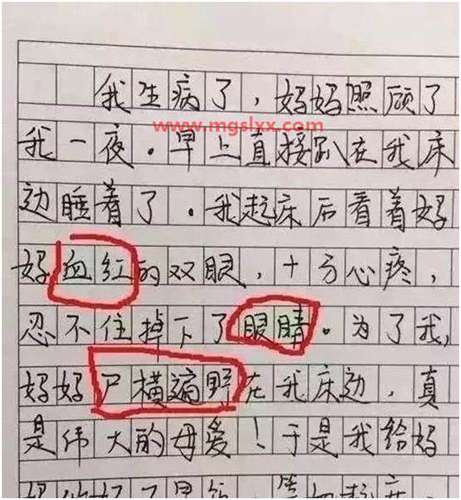 我生病了，妈妈照顾了
www.mgslxx.com
我一夜。早上直接趴在我床
边睡着了。我起床后看着妈
妈血红的双眼，十分心疼，
忍不住掉下了眼睛。为了我，
妈妈尸横遍野在我床边，真
是伟大的母爱！于是我给妈